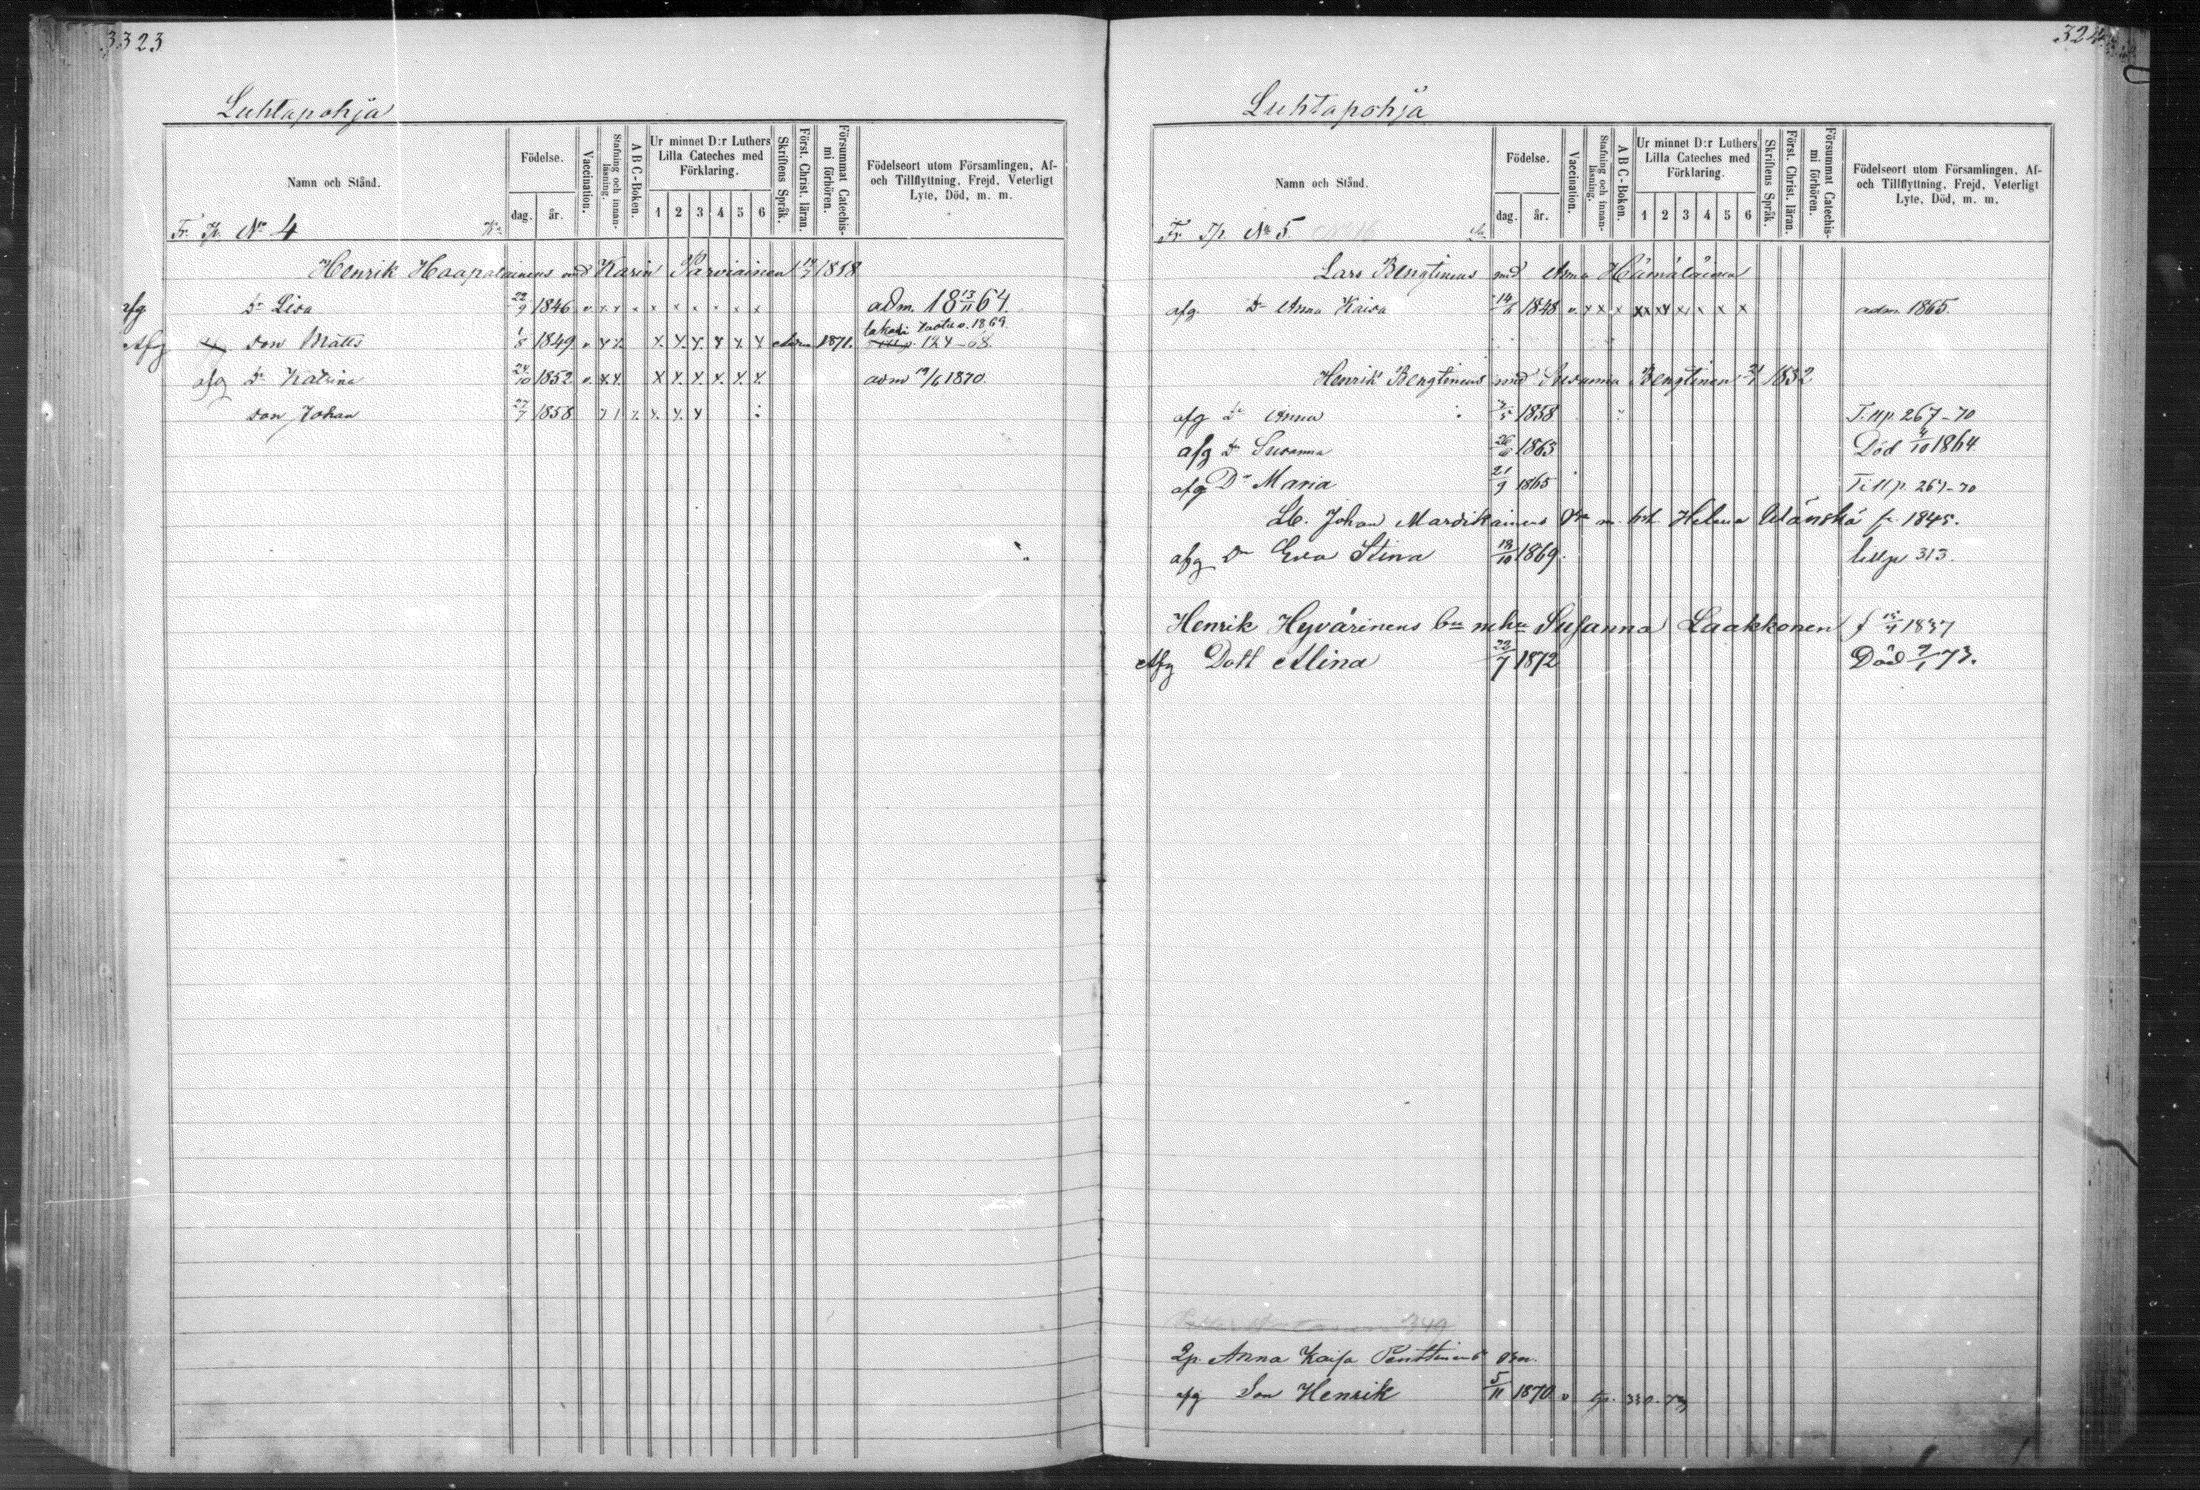 3323
Luhtapohja
Namn och Stånd.
Födelse.
dag.
år.
Vaccination.
Stafning och innan-läsning.
A B C-Boken.
Ur minnet D:r Luthers Lilla Cateches med Förklaring.
1 2 3 4 5 6
Skriftens Språk.
Först. Christ. läran.
Försummat Catechismi förhören.
Födelseort utom Församlingen, Af- och Tillflyttning, Frejd, Veterligt Lyte, Död, m. m.
No 4
Henrik Haapalainens med Karin Parviainen 1858
afg Dr Lisa 22/9 1846 v x x x x x x x x x adm. 18 13/11 64.
Afg son Matts 1/8 1849 v x x x x x x x x Adm 1871. 124-68
afg Dr Katrina 24/10 1852 v x x x x x x x x adm 19/6 1870
son Johan 27/7 1858 x x x x
324
Luhtapohja
Namn och Stånd.
Födelse.
dag.
år.
Vaccination.
Stafning och innan-läsning.
A B C-Boken.
Ur minnet D:r Luthers Lilla Cateches med Förklaring.
1 2 3 4 5 6
Skriftens Språk.
Först. Christ. läran.
Försummat Catechismi förhören.
Födelseort utom Församlingen, Af- och Tillflyttning, Frejd, Veterligt Lyte, Död, m. m.
No 5.
Lars Bengtinens med Anna Hämäläinen
afg Dr Anna Kaisa 14/6 1848 v. x x x x x x x x x adm. 1865.
Henrik Bengtinens med Susanna Bengtinen 1832
afg Dr Anna 3/5 1858 Till p. 267-70
afg Dr Susanna 26/6 1863 Död 4/10 1864
afg Dr Maria 21/9 1865 Till p. 267-70
Lb. Johan Mardikainens m. h. Helena f. 1845.
afg Dr Eva Stina 18/10 1869. till p 313.
Henrik Hyvärinens m hu Susanna Laakkonen f 1837
Afg Dott Alina 22/7 1872 Död 9/1 73.
349
Anna Kaisa Penttinens
afg Son Henrik 5/11 1870 v tp. 330-73